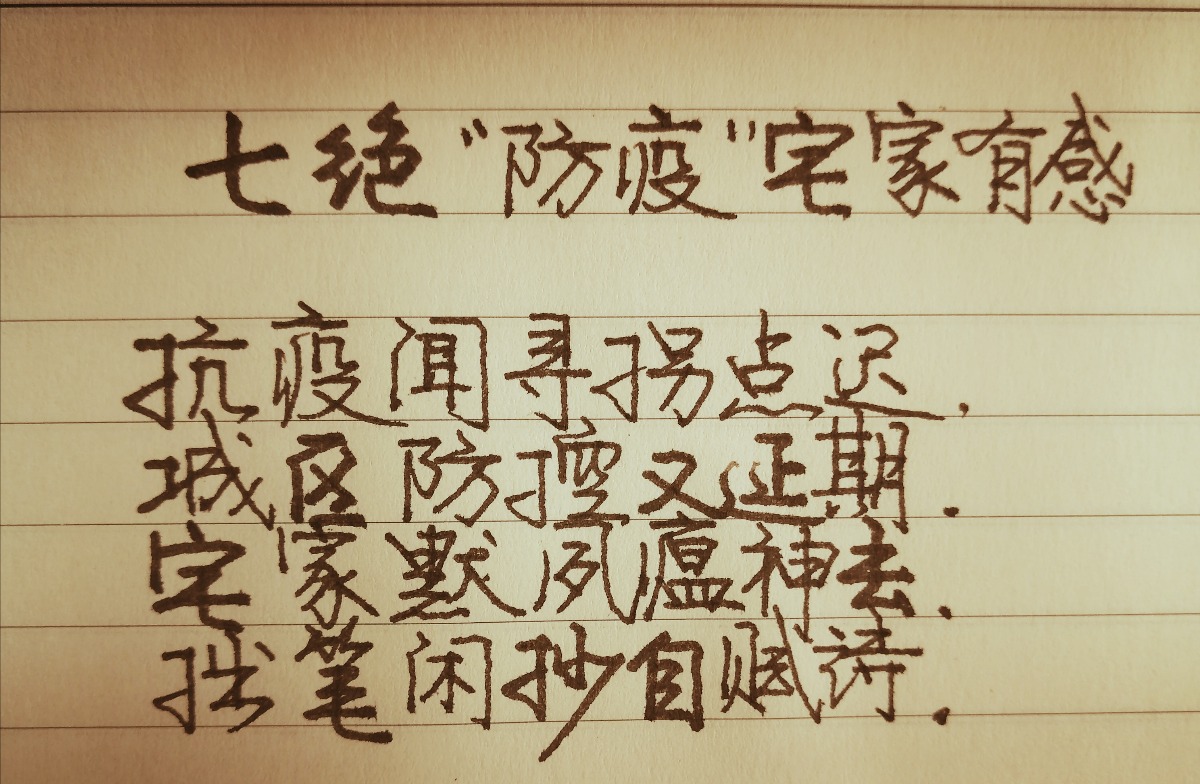 七绝“防疫”宅家有感
抗疫闻寻拐点迟.
城区防控又延期.
宅家默夙瘟神去.
拙笔闲抄自赋诗.